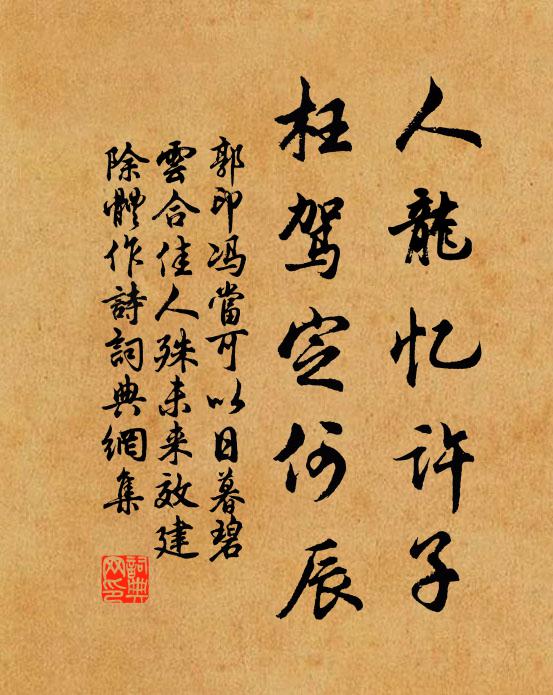 人龍忆许子
枉驾定何辰
郭印冯當可以日暮碧
雲合佳人殊未来效建
除體作詩詞典網集
詞典网印